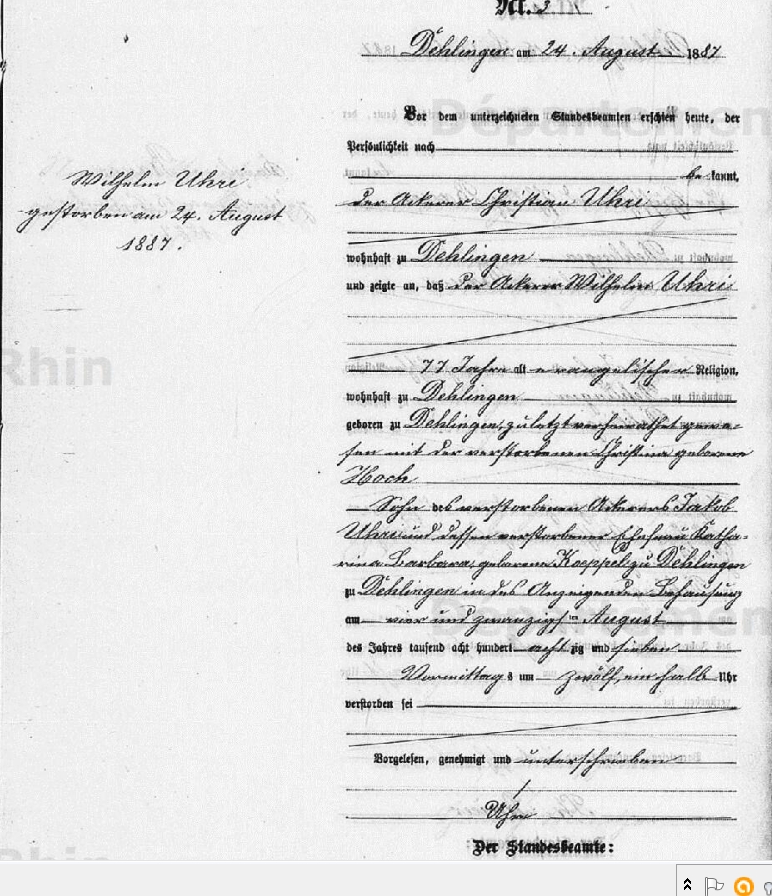 Nr. 3
Dehlingen am 24. August 1887
Vor dem unterzeichneten Standesbeamten erschien heute, der
Persönlichkeit nach
be kannt,
der Ackerer Christian Uhri
Wilhelm Uhri
gestorben am 24. August
1887.
wohnhaft zu Dehlingen
und zeigte an, daß der Ackerer Wilhelm Uhri
77 Jahre alt evangelischer Religion,
wohnhaft zu Dehlingen
geboren zu Dehlingen, zuletzt verheirathet gewe-
sen mit der verstorbenen Christina geborene
Hoch
Sohn des verstorbenen Ackerers Jakob
Uhri und dessen verstorbener Ehefrau Katha-
rina Barbara, geborene Koeppel zu Dehlingen
zu Dehlingen in des Anzeigenden Behausung
am vier und zwanzigst en August
des Jahres tausend acht hundert acht zig und sieben
Vormittag s um zwölf, ein halb Uhr
verstorben sei
Vorgelesen, genehmigt und unterschrieben
Uhri
Der Standesbeamte:
Département
Rhin
Département
Rhin